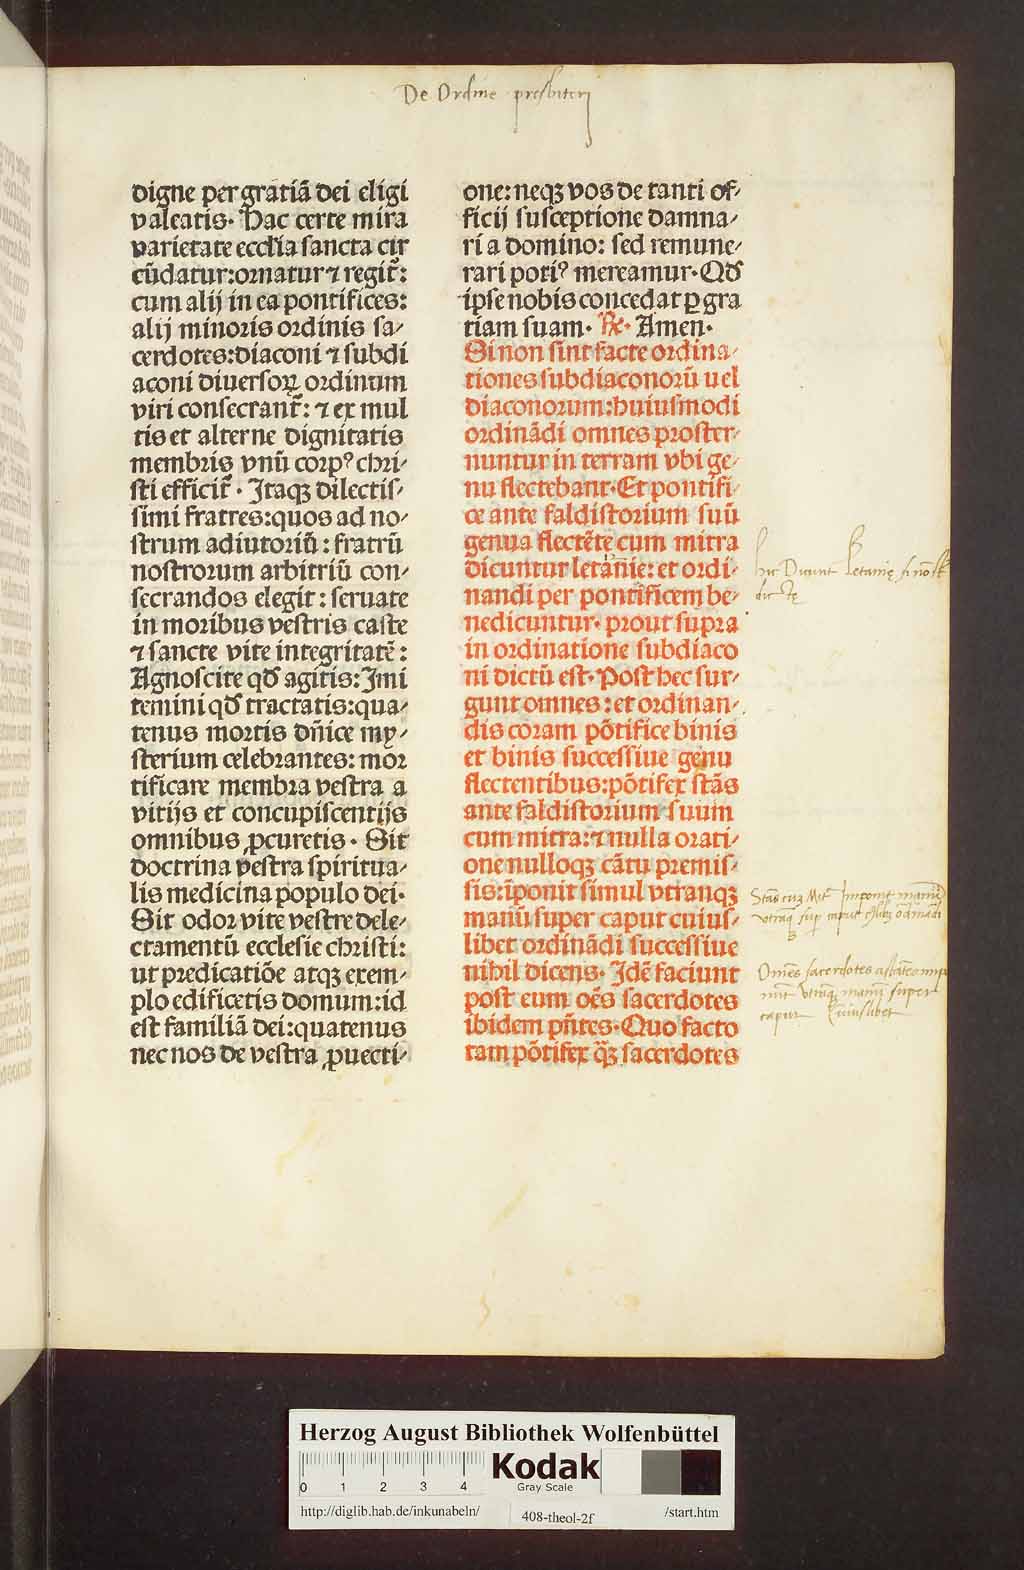 De Ordine presbiterj
digne per gratiā dei eligi
valeatis. Hac certe mira
varietate ecclīa sancta cir
cūdatur:ornatur ⁊ regit᷑:
cum alij in ea pontifices:
alij minoris ordinis sa/
cerdotes:diaconi ⁊ subdi
aconi diuersoꝝ ordinum
viri consecrant᷑: ⁊ ex mul
tis et alterne dignitatis
membris vnū corpꝰ chri/
sti efficit᷑. Itaqꝫ dilectis/
simi fratres:quos ad no/
strum adiutoriū : fratrū
nostrorum arbitriū con/
secrandos elegit : seruate
in moribus vestris caste
⁊ sancte vite integritatē :
Agnoscite qđ agitis: Imi
temini qđ tractatis:qua/
tenus mortis dñice my/
sterium celebrantes: mor
tificare membra vestra a
vitijs et concupiscentijs
omnibus ꝓcuretis. Sit
doctrina vestra spiritua/
lis medicina populo dei.
Sit odor vite vestre dele/
ctamentū ecclesie christi:
ut predicatiōe atqꝫ exem/
plo edificetis domum:id
est familiā dei:quatenus
nec nos de vestra ꝓuecti/
one: neqꝫ vos de tanti of/
ficij susceptione damna/
ri a domino: sed remune/
rari potiꝰ mereamur. Qđ
ipse nobis concedat ꝑ gra
tiam suam. ℟. Amen.
Si non sint facte ordina/
tiones subdiaconorū uel
diaconorum:huiusmodi
ordinādi omnes proster/
nuntur in terram vbi ge/
nu flectebant. Et pontifi/
ce ante faldistorium suū
genua flectēte cum mitra
dicuntur letannie: et ordi/
nandi per pontificem be/
nedicuntur. prout supra
in ordinatione subdiaco
ni dictū est. Post hec sur/
gunt omnes: et ordinan/
dis coram pōtifice binis
et binis successiue genu
flectentibus:pōtifex stās
ante faldistorium suum
cum mitra:⁊ nulla orati/
one nulloqꝫ cātu premis/
sis:īponit simul vtranqꝫ
manū super caput cuius/
libet ordinādi successiue
nihil dicens. Idē faciunt
post eum oēs sacerdotes
ibidem pñtes. Quo facto
tam pōtifex q̄ꝫ sacerdotes
hic Dicunt Letanię si nō
dictę
Stās cuꝫ Mit Imponit manū
vtraqꝫ sup caput
Omēs sacerdotes
vtraqꝫ manū super
caput Cuiuslibet
Herzog August Bibliothek Wolfenbüttel
0 1 2 3 4
Kodak
Gray Scale
http://diglib.hab.de/inkunabeln/
408-theol-2f
/start.htm